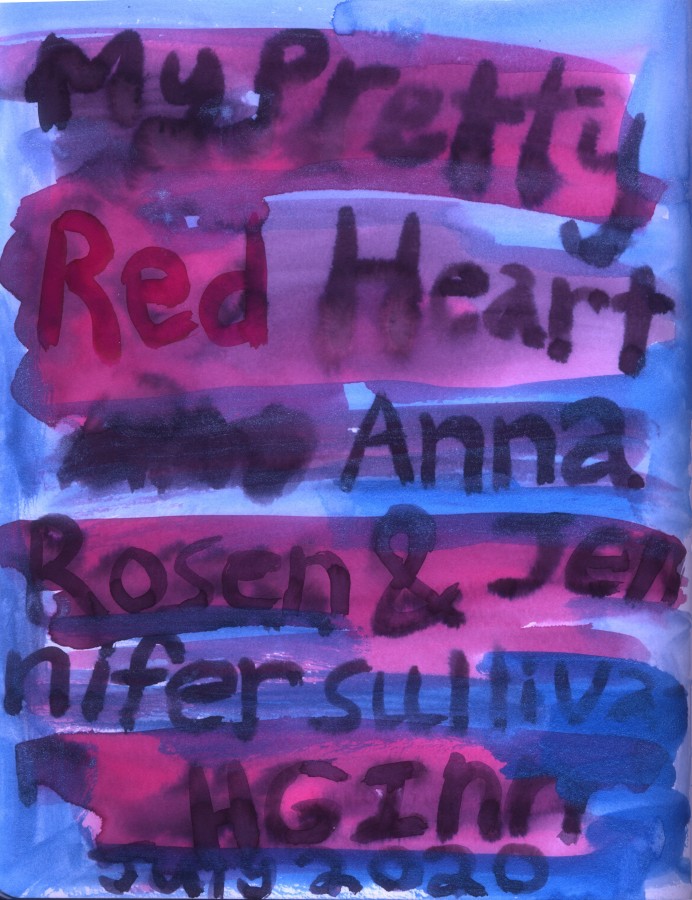 My Pretty
Red Heart
Anna
Rosen & Jen
nifer sulliva
HGInn
July 2020